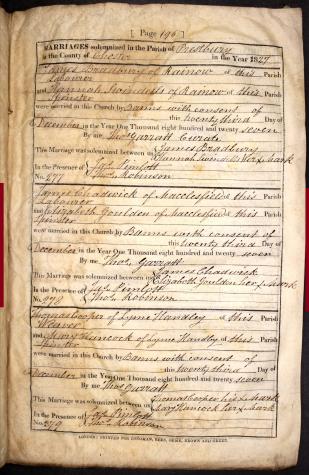 [ Page 196 ]
MARRIAGES solemnized in the Parish of Prestbury
in the County of Chester in the Year 1827
James Bradbury of Rainow in this Parish
Labourer
and Hannah Swindells of Rainow in this Parish
Spinster
were married in this Church by Banns with consent of
this twenty third Day of
December in the Year One Thousand eight hundred and twenty seven
By me Thos. Garratt Curate
This Marriage was solemnized between us James Bradbury
Hannah Swindells her x Mark
In the Presence of
Thos. Robinson
No. 877
James Chadwick of Macclesfield in this Parish
Labourer
and Elizabeth Goulden of Macclesfield in this Parish
Spinster
were married in this Church by Banns with consent of
this twenty third Day of
December in the Year One Thousand eight hundred and twenty seven
By me Thos. Garratt
This Marriage was solemnized between us James Chadwick
Elizabeth Goulden her x Mark
In the Presence of
No. 878 Thos. Robinson
Thomas Cooper of Lyme Handley in this Parish
Weaver
and Mary Hancock of Lyme Handley in this Parish
Spinster
were married in this Church by Banns with consent of
this twenty third Day of
December in the Year One Thousand eight hundred and twenty seven
By me Thos. Garratt
This Marriage was solemnized between us Thomas Cooper his x Mark
Mary Hancock her x Mark
In the Presence of
No. 879 Thos. Robinson
LONDON: PRINTED FOR LONGMAN, REES, ORME, BROWN AND GREEN.